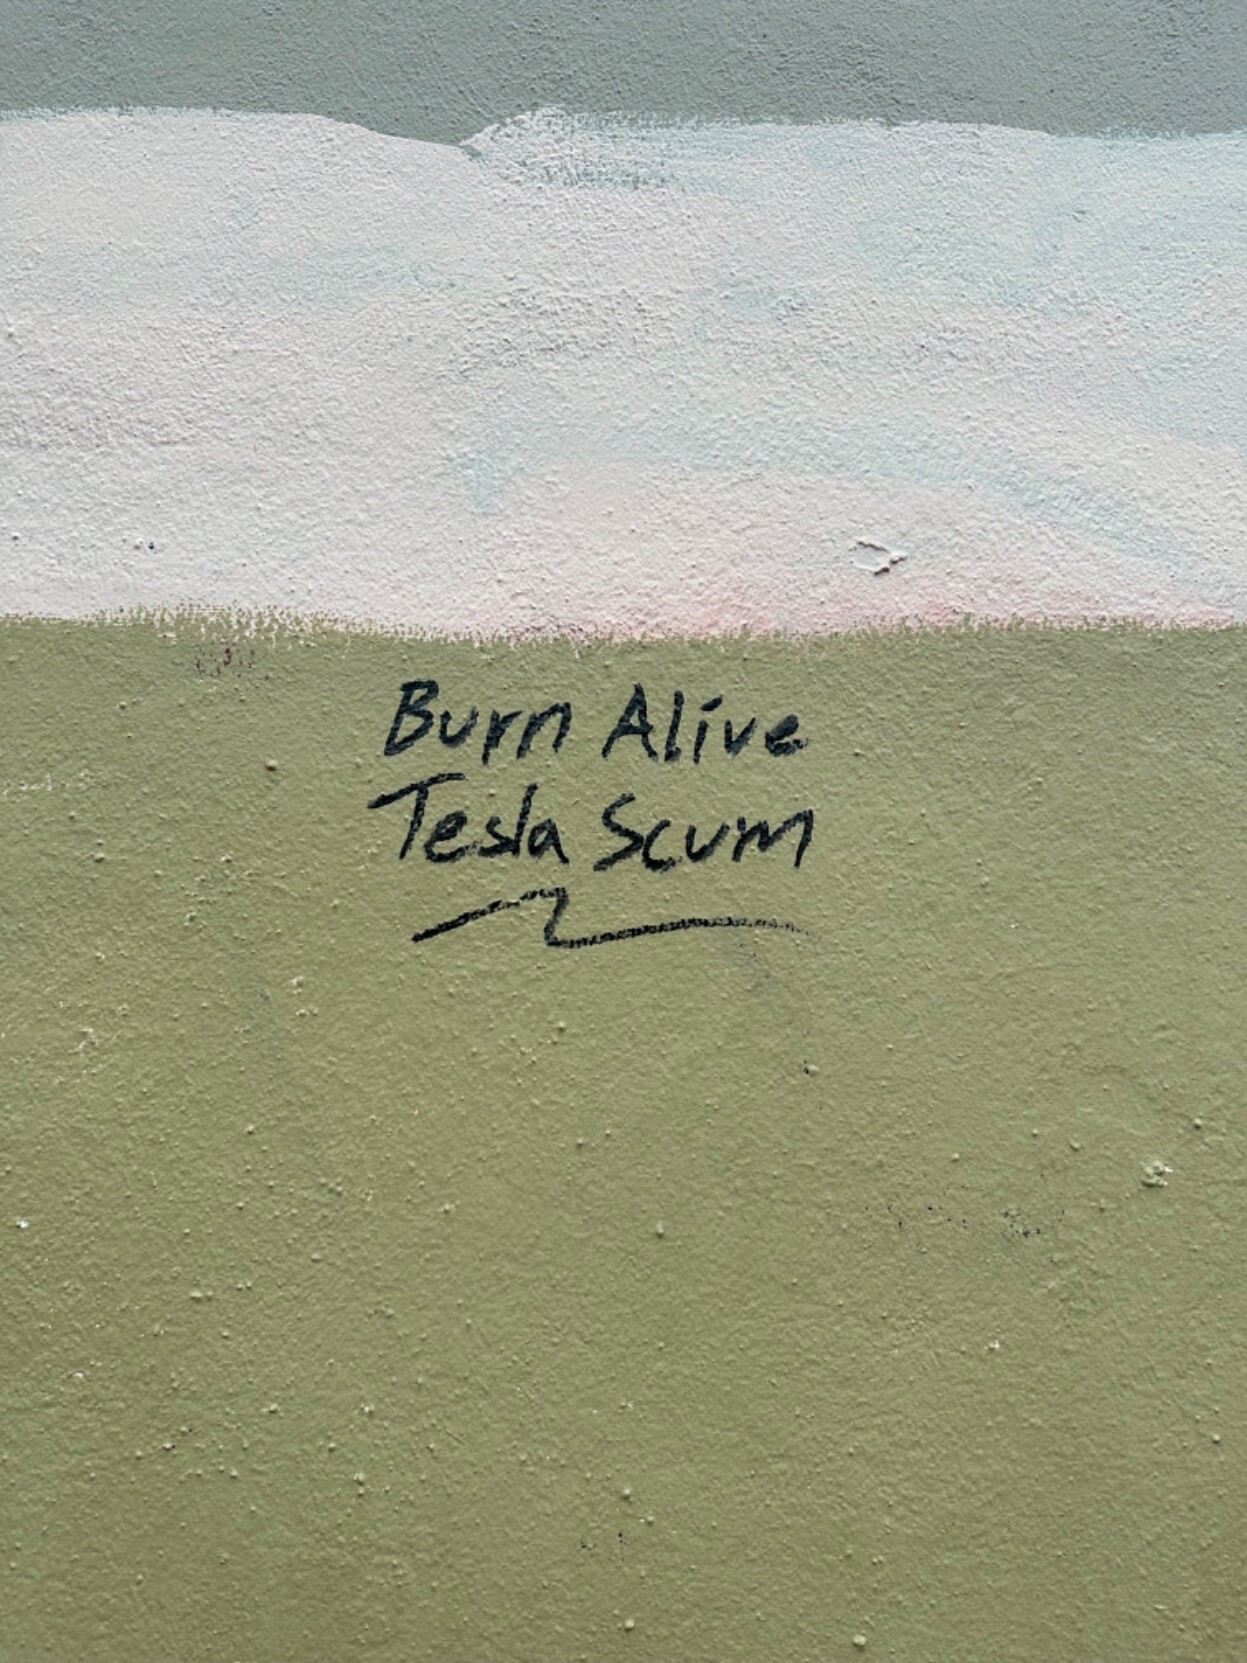 Burn Alive
Tesla Scum